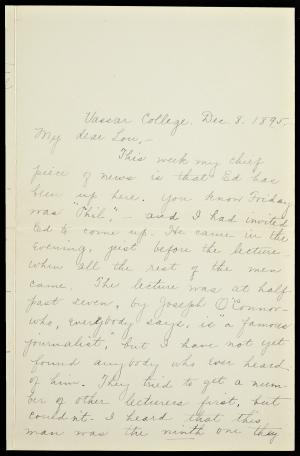 Vassar College. Dec. 8. 1895.
My dear Lou,-
This week my chief
piece of news is that Ed has
been up here. You know Friday
was "Phil," - and I had invited
Ed to come up. He came in the
evening, just before the lecture -
when all the rest of the men
came. The lecture was at half
past seven, by Joseph O'Connor -
who, everybody says, is "a famous
journalist," but I have not yet
found anybody who ever heard
of him. They tried to get a num-
ber of other lecturers first, but
couldn't - I heard that this
man was the ninth one they